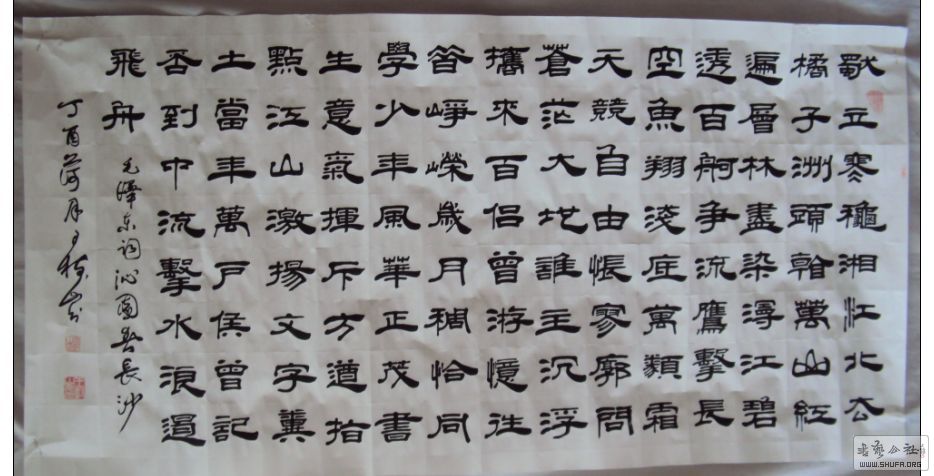 獨立寒穐湘江北去
橘子洲頭看萬山紅
遍層林盡染漫江碧
透百舸爭流鷹擊長
空魚翔淺底萬類霜
天競自由悵寥廓問
蒼茫大地誰主沉浮
攜來百侶曾游憶往
昔崢嶸歲月稠恰同
學少年風華正茂書
生意氣揮斥方遒指
點江山激揚文字糞
土當年萬戶侯曾記
否到中流擊水浪遏
飛舟
毛澤东词沁園春長沙
丁酉荷月
WWW.SHUFA.ORG